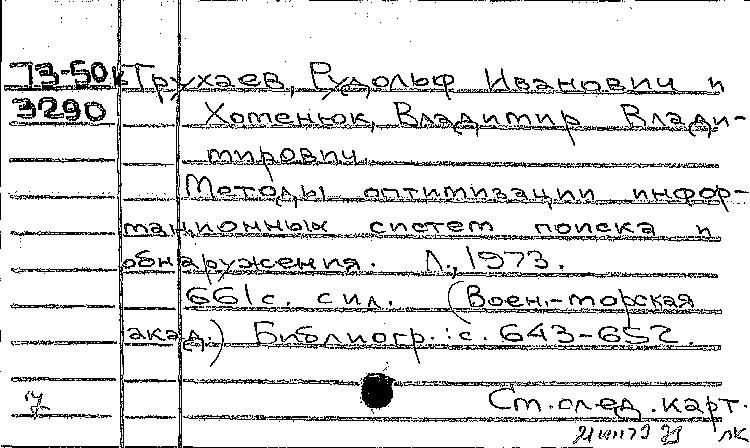 73-50к Трухаев, Рудольф Иванович и
3290 Хотенюк, Владимир Влади-
мирович.
Методы оптимизации инфор-
мационных систем поиска и
обнаружения. Л., 1973.
661с. с ил. (Воен.-морская
акад.) Библиогр.: с. 643-652.
Ст. след. карт.
ЛК